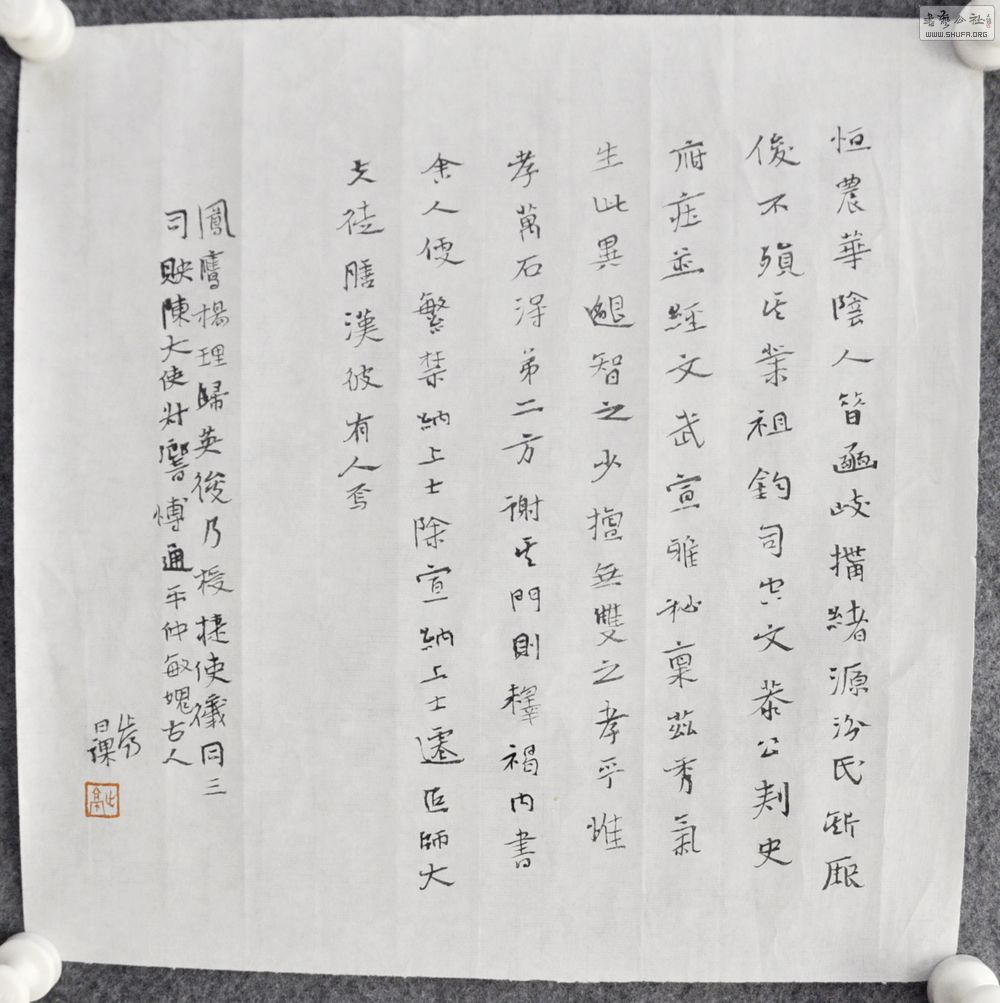 恒農華陰人皆酆岐搢緒源汾民斯厥
後不殞其業祖鈞司空文恭公刺史
府莊並經文武宣雅秘稟茲秀氣
生此異聰智之少擅無雙之孝乎唯
孝萬石得弟二方謝其門則釋褐內書
舍人便繁禁納上士除宣納上士遷匠師大
夫徒膳漢彼有人焉
鳳鷹楊理歸英後乃授捷使儀同三
司映陳大使對響博通平仲敏愧古人
日課
書藝公社
WWW.SHUFA.ORG